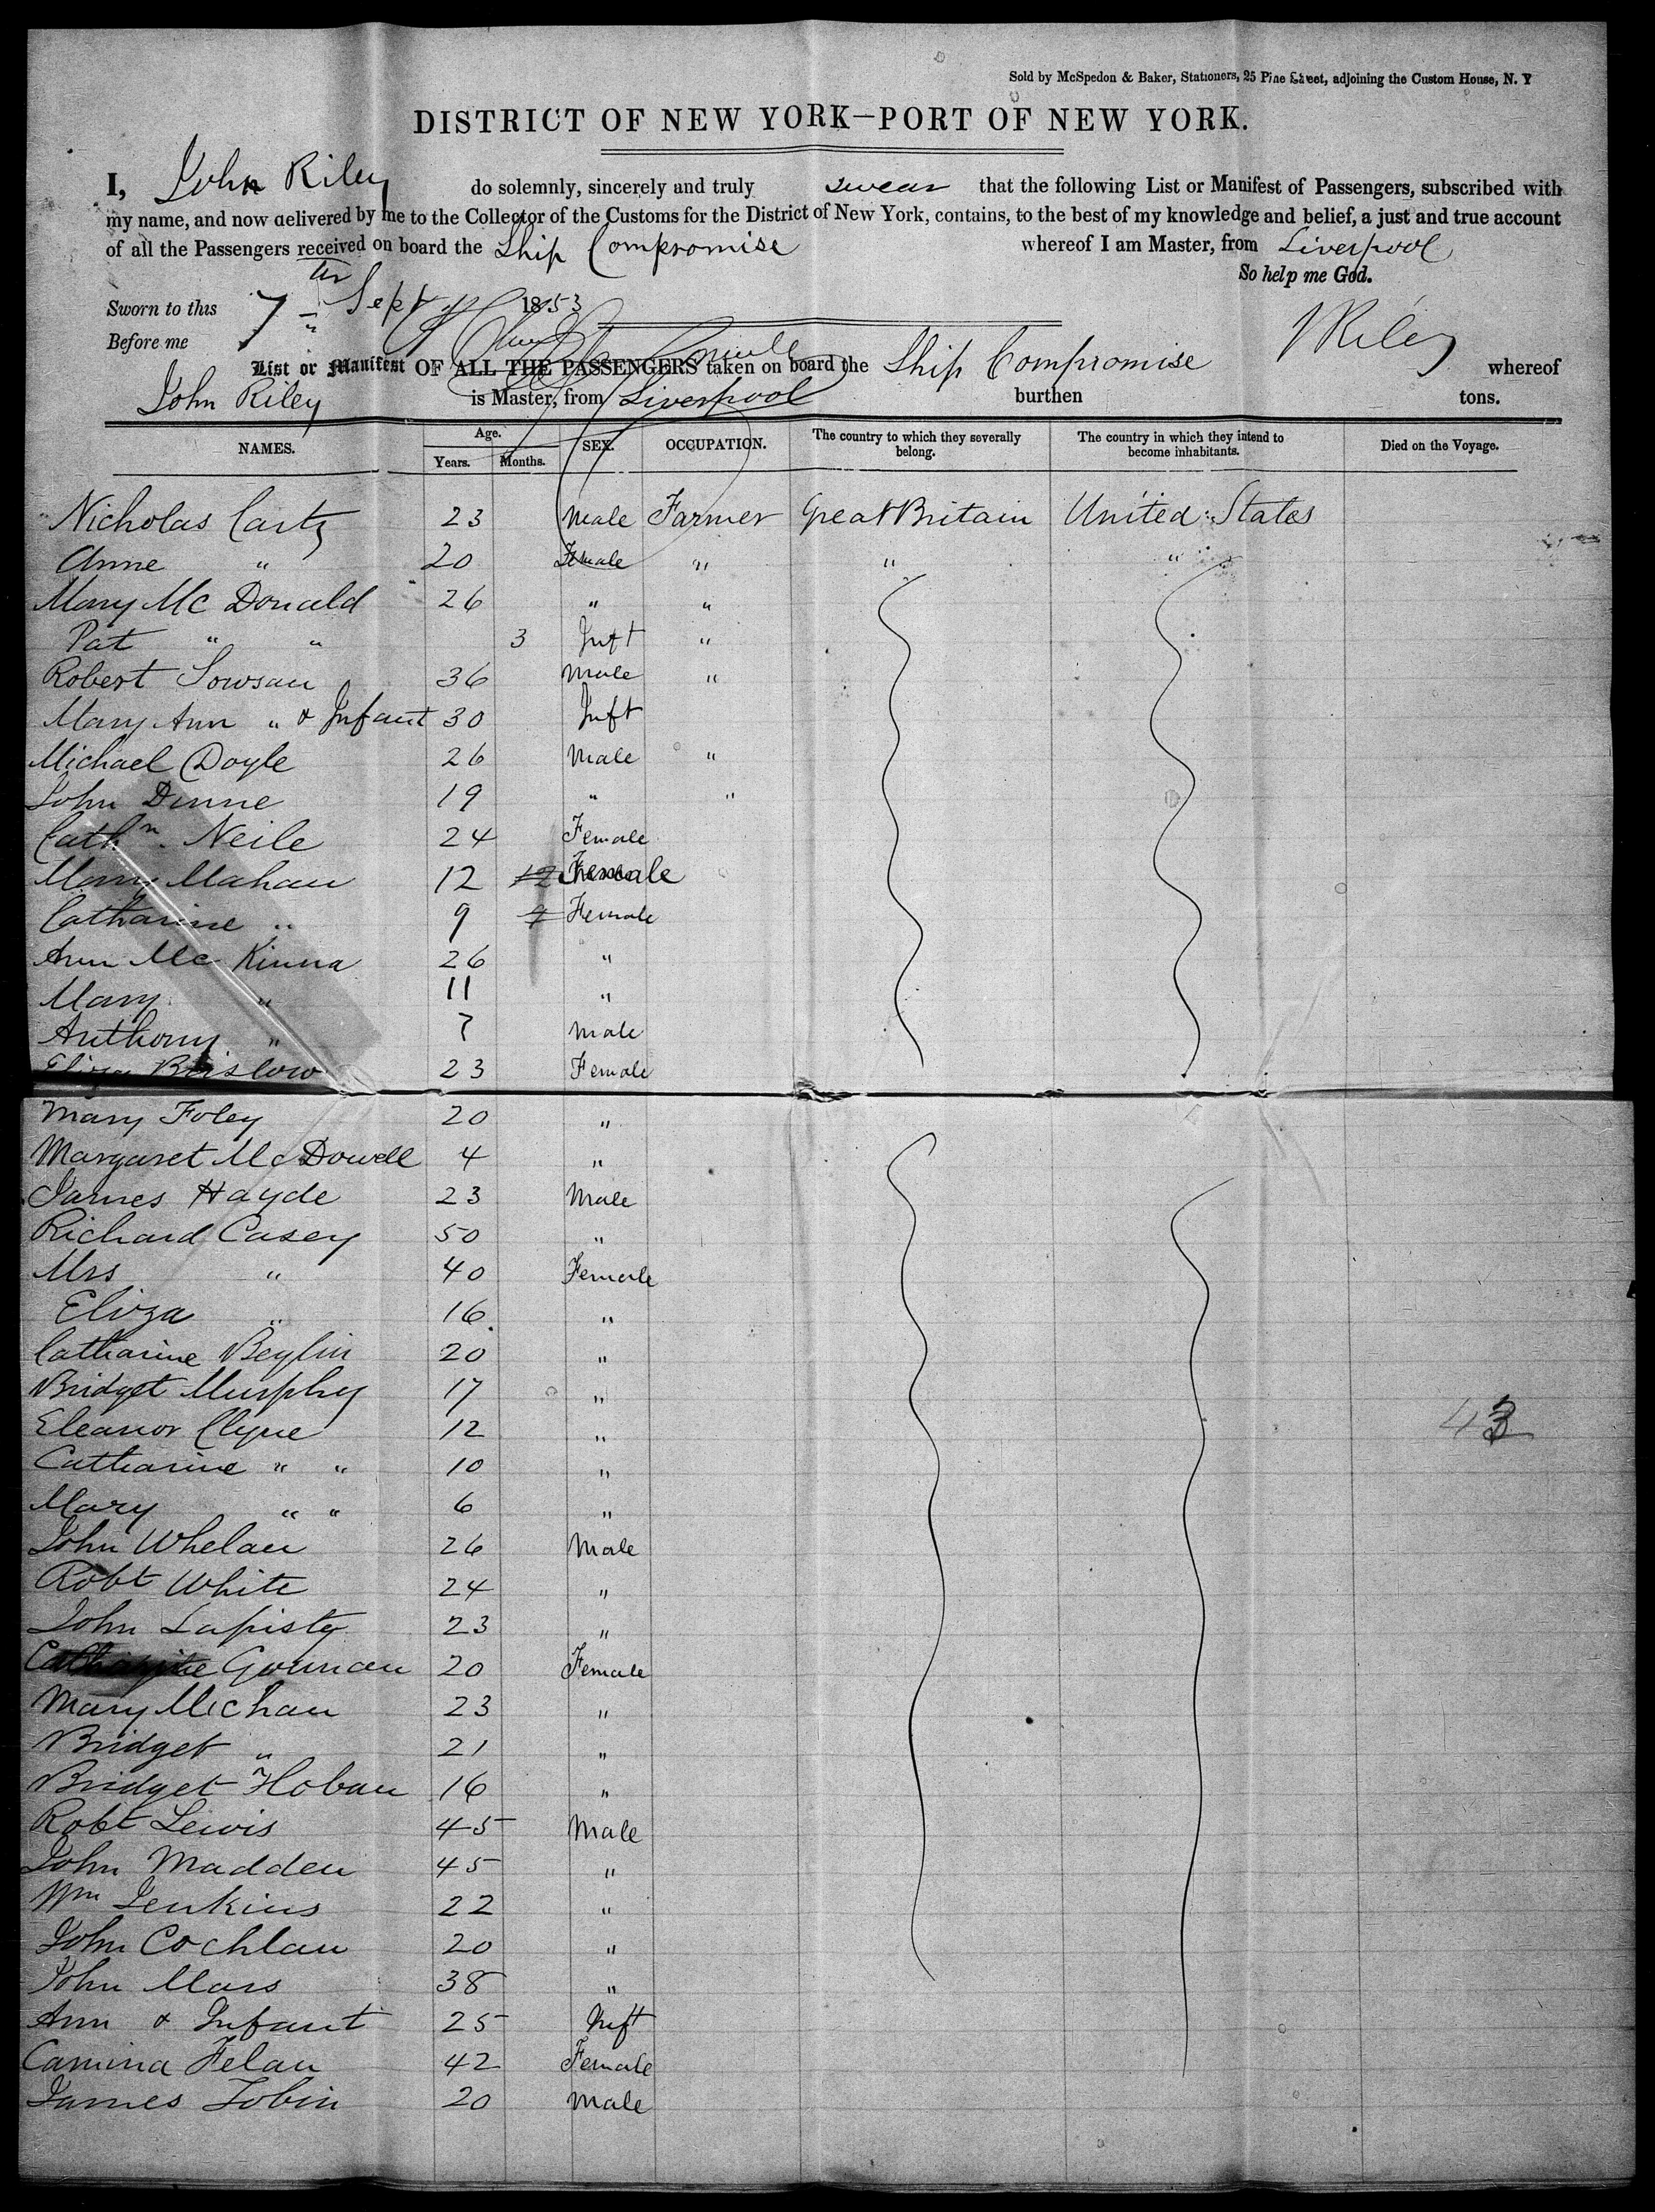 Sold by McSpedon & Baker, Stationers, 25 Pine Street, adjoining the Custom House, N. Y
DISTRICT OF NEW YORK—PORT OF NEW YORK.
I, John Riley do solemnly, sincerely and truly swear that the following List or Manifest of Passengers, subscribed with
my name, and now delivered by me to the Collector of the Customs for the District of New York, contains, to the best of my knowledge and belief, a just and true account
of all the Passengers received on board the Ship Compromise whereof I am Master, from Liverpool
So help me God.
Sworn to this 7th Sept 1853
Before me J Riley
List or Manifest OF ALL THE PASSENGERS taken on board the Ship Compromise whereof
John Riley is Master, from Liverpool burthen tons.
NAMES. Age. Years. Months. SEX. OCCUPATION. The country to which they severally belong. The country in which they intend to become inhabitants. Died on the Voyage.
Nicholas 23 Male Farmer Great Britain United States
Anne " 20 Female " " "
Mary Mc Donald 26 " "
Pat " " 3 Inft "
Robert Sowsan 36 Male "
Mary Ann " & Infant 30 Inft
Michael Doyle 26 Male "
John Dunne 19 " "
Cathn. Neile 24 Female
Mary Mahan 12 12 Female
Catharine " 9 9 Female
Ann Mc Kinna 26 "
Mary " 11 "
Anthony " 7 Male
Eliza Brislow 23 Female
Mary Foley 20 "
Margaret McDowell 4 "
James Hayde 23 Male
Richard Casey 50 "
Mrs " 40 Female
Eliza " 16 "
Catharine Beglin 20 "
Bridget Murphy 17 "
Eleanor Clyne 12 " 43
Catharine " " 10 "
Mary " " 6 "
John Whelan 26 Male
Robt White 24 "
John Lapisty 23 "
Catharine Gorman 20 Female
Mary Mechan 23 "
Bridget " 21 "
Bridget Hoban 16 "
Robt Lewis 45 Male
John Madden 45 "
Wm Jenkins 22 "
John Cochlan 20 "
John Mars 38 "
Ann & Infant 25 Inft
Camina Felan 42 Female
James Tobin 20 Male